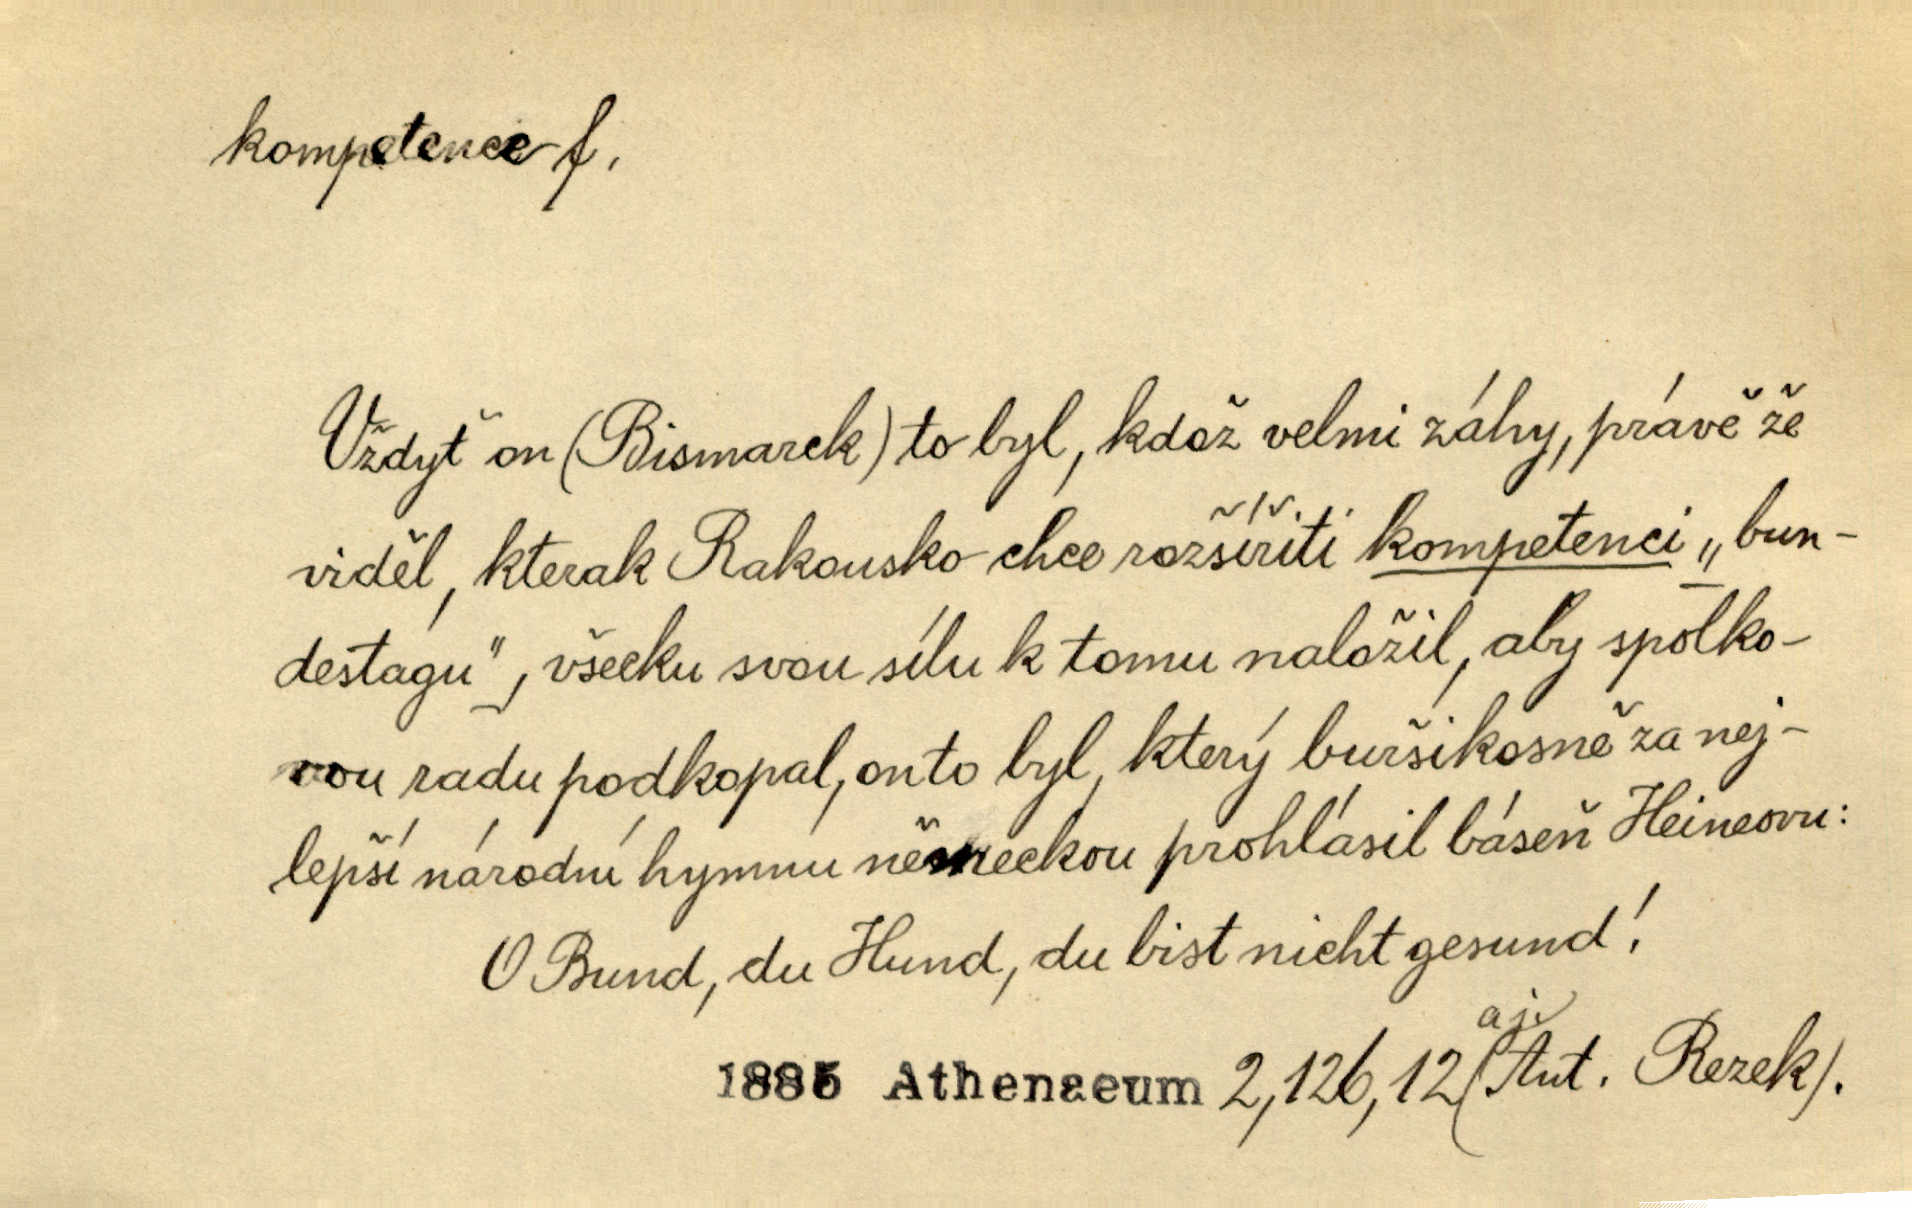 kompetence f.
Vždyť on (Bismarck) to byl, kdož velmi záhy, právě že
viděl, kterak Rakousko chce rozšířiti kompetenci „bun-
destágu", všecku svou sílu k tomu naložil, aby spolko-
vou radu podkopal, on to byl, který buršikosně za nej-
lepší národní hymnu německou prohlásil báseň Heineovu:
O Bund, du Hund, du bist nicht gesund!
aj.
1885 Athenaeum 2,126,12 (Ant. Rezek).